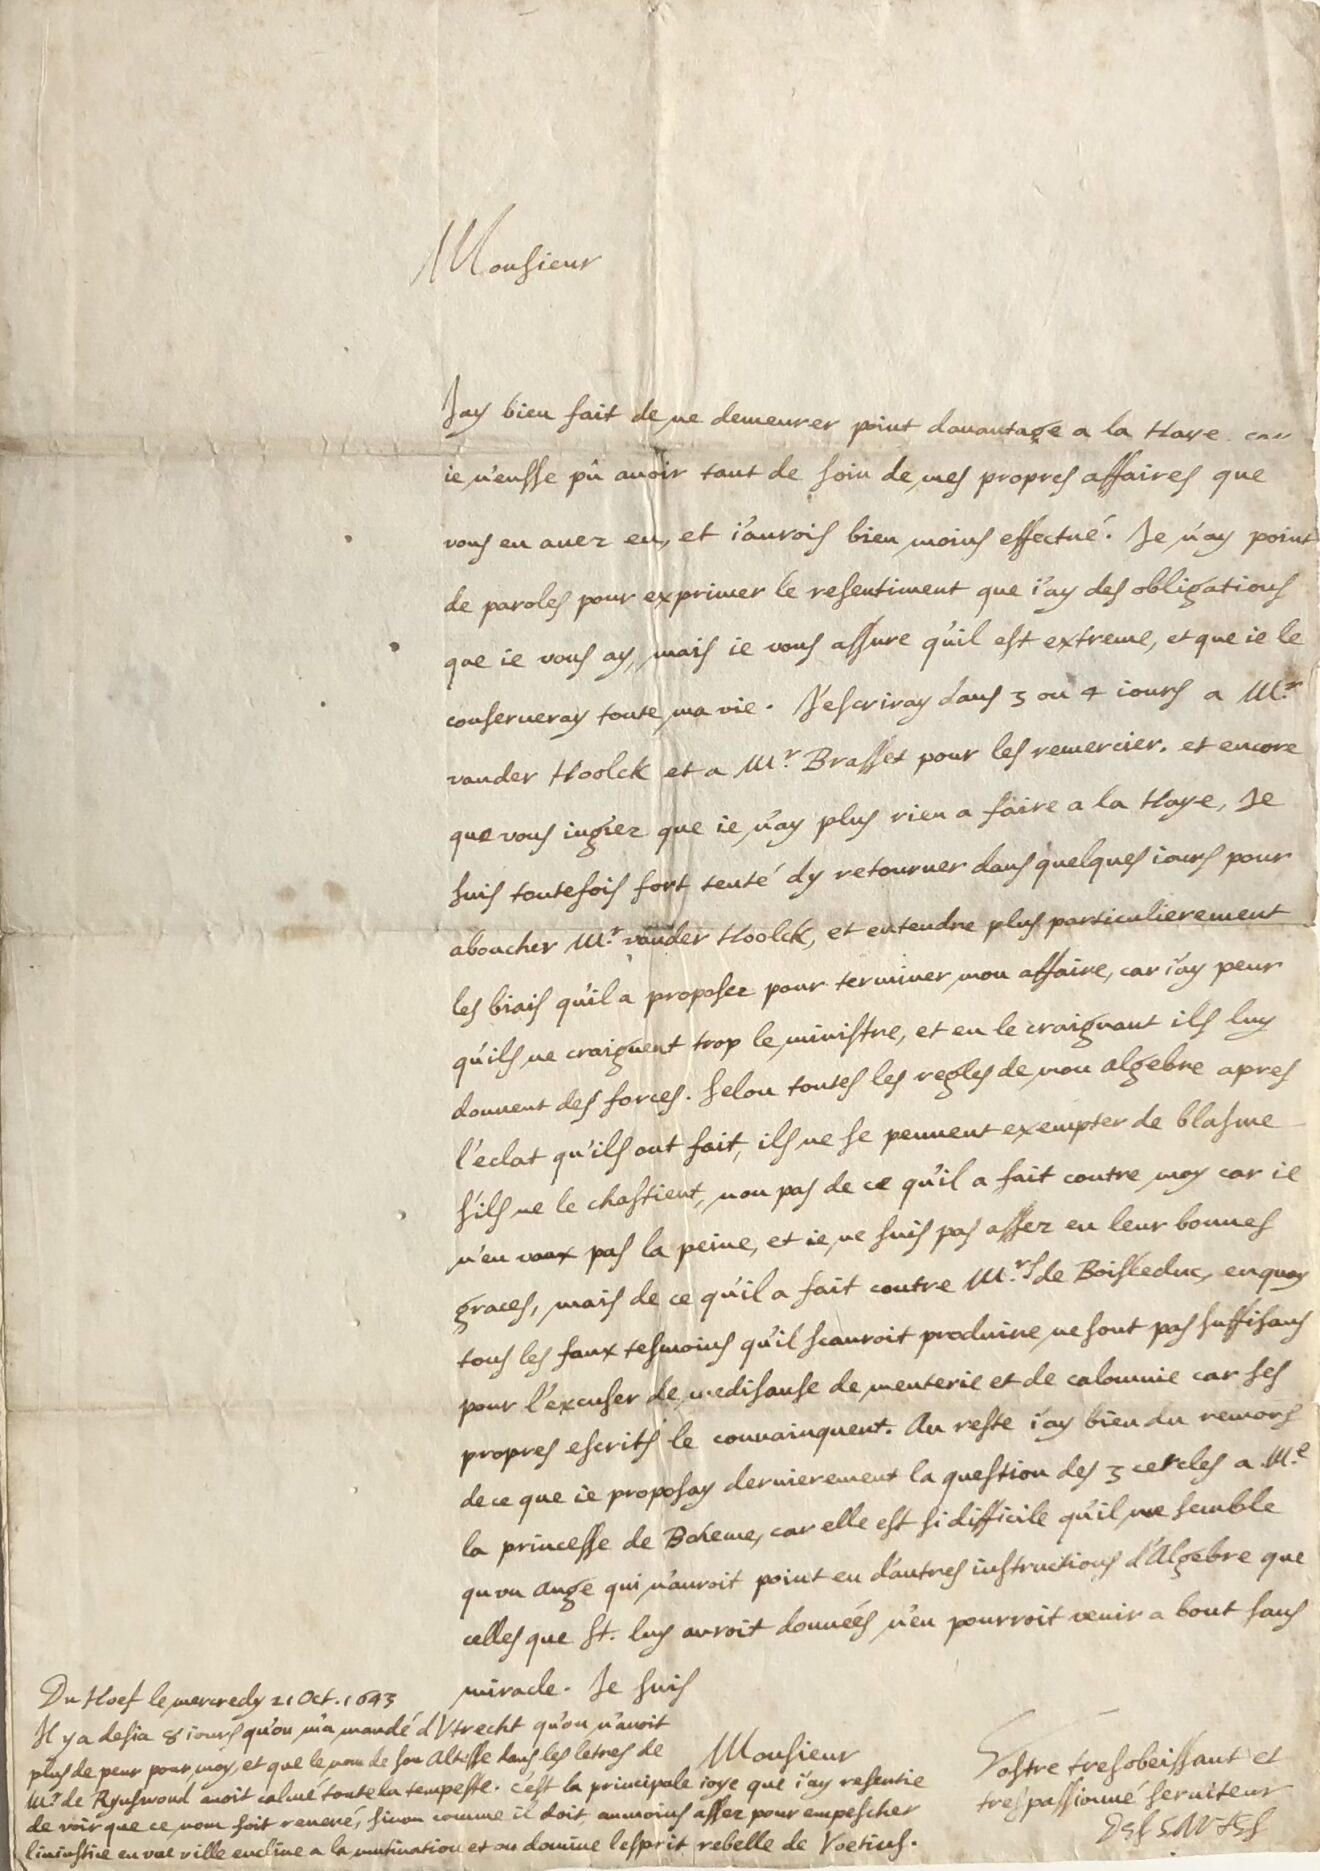 Monsieur
J'ay bien fait de ne demeurer point dauantage a la Haye car
ie n'eusse pû auoir tant de soin de mes propres affaires que
vous en auez eu, et i'aurois bien moins effectué. Je n'ay point
de paroles pour exprimer le resentiment que i'ay des obligations
que ie vous ay, mais ie vous assure qu'il est extreme, et que ie le
conserueray toute ma vie. J'escriray dans 3 ou 4 iours a Mr.
vander Hoolck et a Mr. Brasset pour les remercier. et encore
que vous iugiez que ie n'ay plus rien a faire a la Haye, Je
suis toutefois fort tenté d'y retourner dans quelques iours pour
aboucher Mr. vander Hoolck, et entendre plus particulierement
les biais qu'il a proposez pour terminer mon affaire, car i'ay peur
qu'ils ne craignent trop le ministre, et en le craignant ils luy
donnent des forces. Selon toutes les regles de mon algebre apres
l'eclat qu'ils ont fait, ils ne se peuuent exempter de blasme
s'ils ne le chastient, non pas de ce qu'il a fait contre moy car ie
n'en vaux pas la peine, et ie ne suis pas assez en leur bonnes
graces, mais de ce qu'il a fait contre Mrs. de Boisleduc, en quoy
tous les faux tesmoins qu'il scauroit produire ne sont pas suffisans
pour l'excuser de medisanse de menterie et de calomnie car ses
propres escrits le conuainquent. Au reste i'ay bien du remors
de ce que ie proposay dernierement la question des 3 cercles a Me.
la princesse de Boheme, car elle est si difficile qu'il me semble
qu'vn Ange qui n'auroit point eu d'autres instructions d'Algebre que
celles que St. luy auroit données n'en pourroit venir a bout sans
miracle. Je suis
Monsieur
Vostre tresobeissant et
trespassionné seruiteur
Descartes
Du Hoef le mercredy 21 Oct. 1643
Il y a desia 8 iours qu'on m'a mandé d'Vtrecht qu'on n'auoit
plus de peur pour moy, et que le nom de son Altesse dans les letres de
Mr. de Rynswoud auoit calmé toute la tempeste. c'est la principale ioye que i'ay ressentie
de voir que ce nom soit reueré, sinon comme il doit, aumoins assez pour empescher
l'iniustice en vne ville encline a la mutination et ou domine l'esprit rebelle de Voetius.